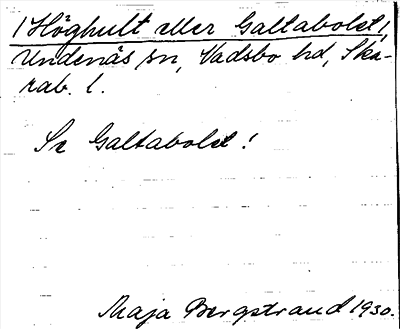 /Höghult eller Galtabolet/,
Undenäs sn, Vadsbo hd, Ska-
rab. l.
Se Galtabolet!
Maja Bergstrand 1930.